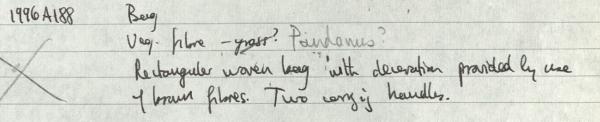 1996 A188 Bag
Veg. fibre - grass? Pandanus?
Rectangular woven bag with decoration provided by use
of brown fibres. Two carrying handles.